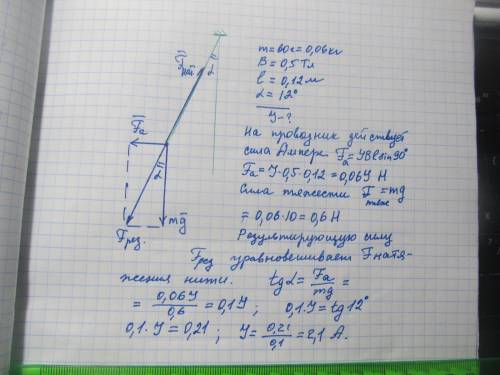 m=60г=0,06кг
B=0,5Тл
l=0,12м
α=12°
У-?
F̅нат
α
F̅a
α
mg̅
Fрез.
На проводник действует
сила Ампера F̅a=УBlsin90°
Fa=У·0,5·0,12=0,06У Н
Сила тяжести F̅тяж=mg
=0,06·10=0,6Н
Результирующую силу
Fрез уравновешивает Fнатя-
жения нити. tgα=Fa/mg=
=0,06У/0,6=0,1У; 0,1·У=tg12°
0,1·У=0,21; У=0,21/0,1=2,1 А.